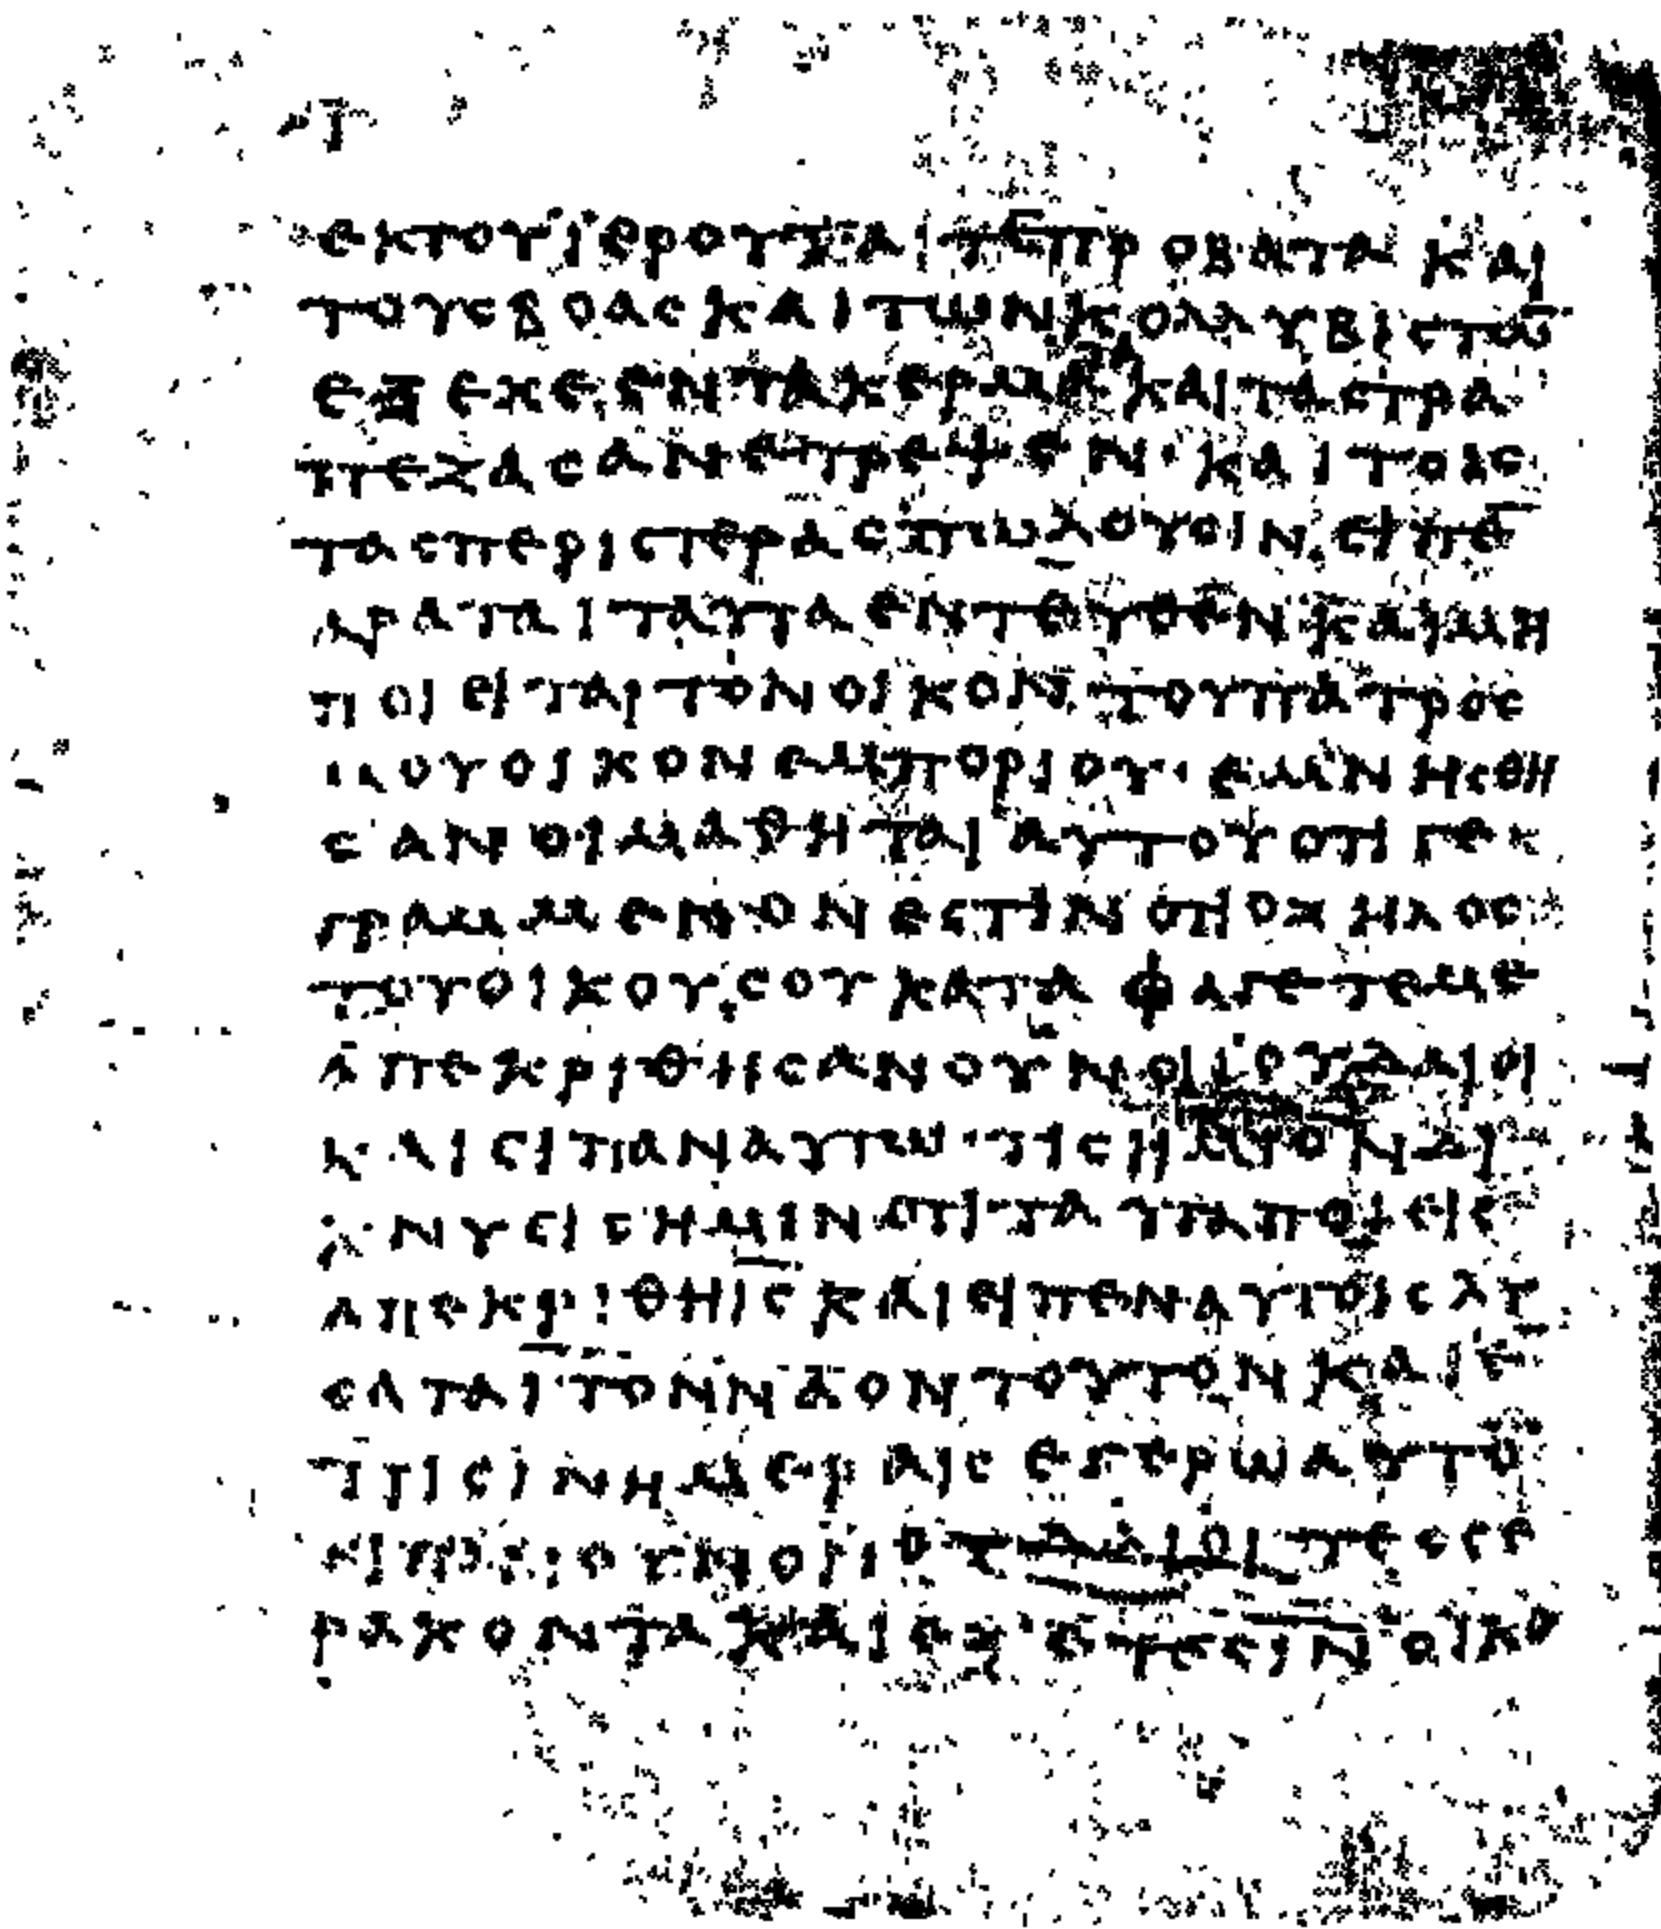 ΕΚΤΟΥΪΕΡΟΥΤΑΙΤΕΠΡΟΒΑΤΑΚΑΙ
ΤΟΥϹΒΟΑϹΚΑΙΤΩΝΚΟΛΛΥΒΙϹΤΩ̅
ΕΞΕΧΕΕΝΤΑΚΕΡΜΑΤΑΚΑΙΤΑϹΤΡΑ
ΠΕΖΑϹΑΝΕΤΡΕΨΕΝ·ΚΑΙΤΟΙϹ
ΤΑϹΠΕΡΙϹΤΕΡΑϹΠΩΛΟΥϹΙΝΕΙΠΕ̅
ΑΡΑΤΑΙΤΑΥΤΑΕΝΤΕΥΘΕΝΚΑΙΜΗ
ΠΟΙΕΙΤΑΙΤΟΝΟΙΚΟΝΤΟΥΠΑΤΡΟϹ
ΜΟΥΟΙΚΟΝΕΜΠΟΡΙΟΥ·ΕΜΝΗϹΘΗ
ϹΑΝΟΙΜΑΘΗΤΑΙΑΥΤΟΥΟΤΙΓΕ
ΓΡΑΜΜΕΝΟΝΕϹΤΙΝΟΤΙΟΖΗΛΟϹ
ΤΟΥΟΙΚΟΥϹΟΥΚΑΤΑΦΑΓΕΤΕΜΕ
ΑΠΕΚΡΙΘΗϹΑΝΟΥΝΟΙΪΟΥΔΑΙΟΙ
ΚΑΙΕΙΠΑΝΑΥΤΩ·ΤΙϹΗΜΙΟΝΔΙ
ΚΝΥΕΙϹΗΜΙΝΟΤΙΤΑΥΤΑΠΟΙΕΙϹ
ΑΠΕΚΡΙΘΗΙϹΚΑΙΕΙΠΕΝΑΥΤΟΙϹΛΥ
ϹΑΤΑΙΤΟΝΝΑΟΝΤΟΥΤΟΝΚΑΙΕ̅
ΤΡΙϹΙΝΗΜΕΡΑΙϹΕΓΕΡΩΑΥΤΟ
ΕΙΠΟΝΟΥΝΟΙΙΟΥΔΑΙΟΙΤΕϹϹΕ
ΡΑΚΟΝΤΑΚΑΙΕΞΕΤΕϹΙΝΟΙΚΟ